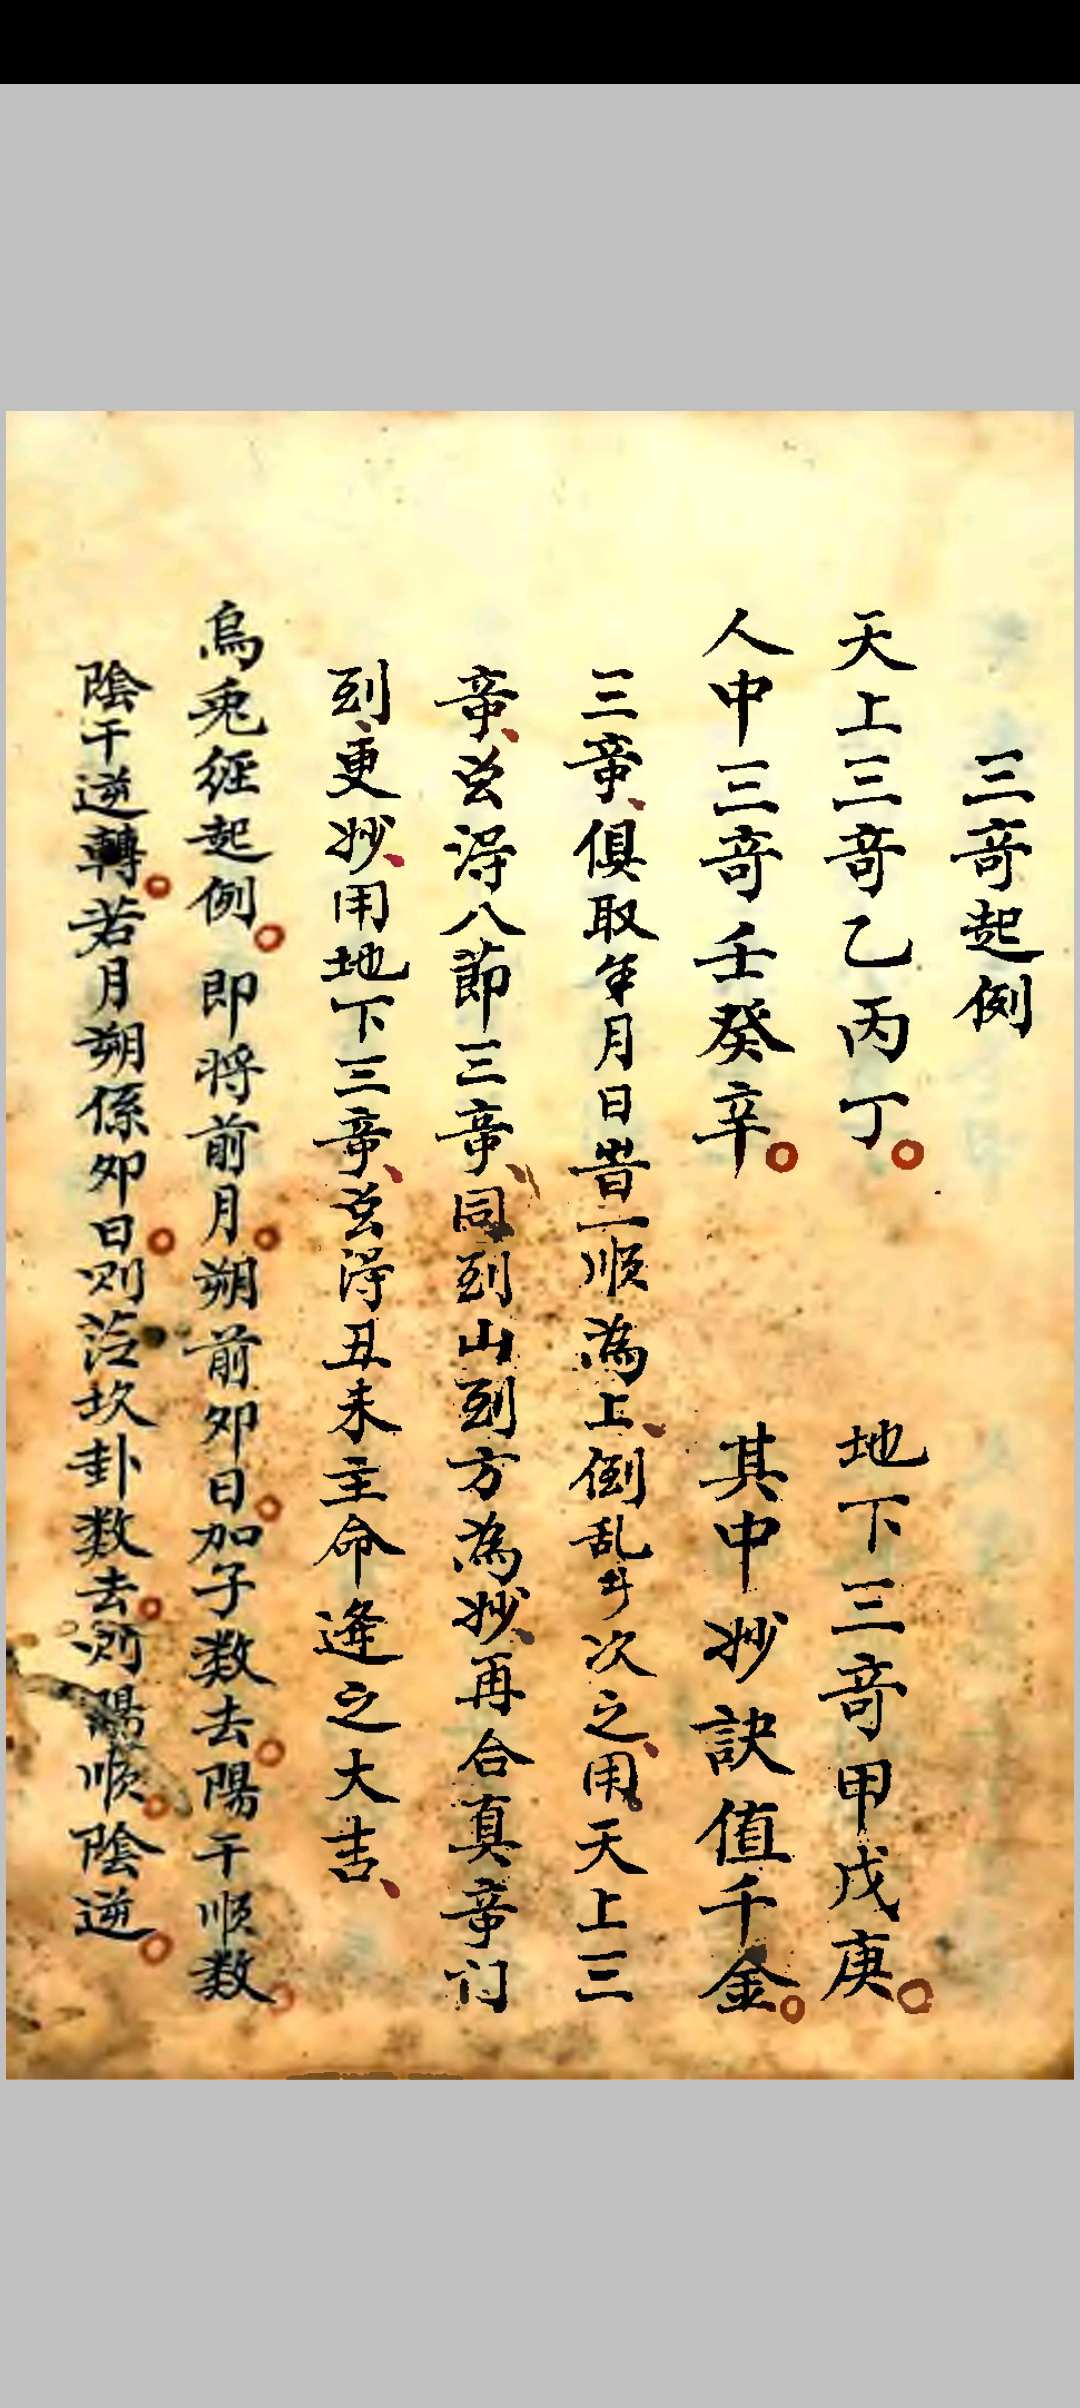 三竒起例
天上三竒乙丙丁。 地下三竒甲戊庚。
人中三竒壬癸辛。 其中妙訣值千金。
三竒、俱取年月日 一順為上、倒乱 次之、用天上三
竒、 得八節三竒、同到山到方為妙、再合真竒门
到、更妙、用地下三竒、 得丑未主命逢之大吉、
烏兎經起例。即将前月。朔前夘日。加子数去。陽干順数。
陰干逆轉。若月朔係夘日。则 坎卦数去。则陽順。陰逆。